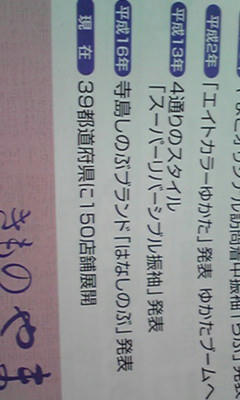 オリジナル訪問着中振袖
平成2年 「エイトカラーゆかた」発表 ゆかたブームへ
平成13年 4通りのスタイル
「スーパーリバーシブル振袖」発表
平成16年 寺島しのぶブランド「はなしのぶ」発表
現在 39都道府県に150店舗展開
きもの やま